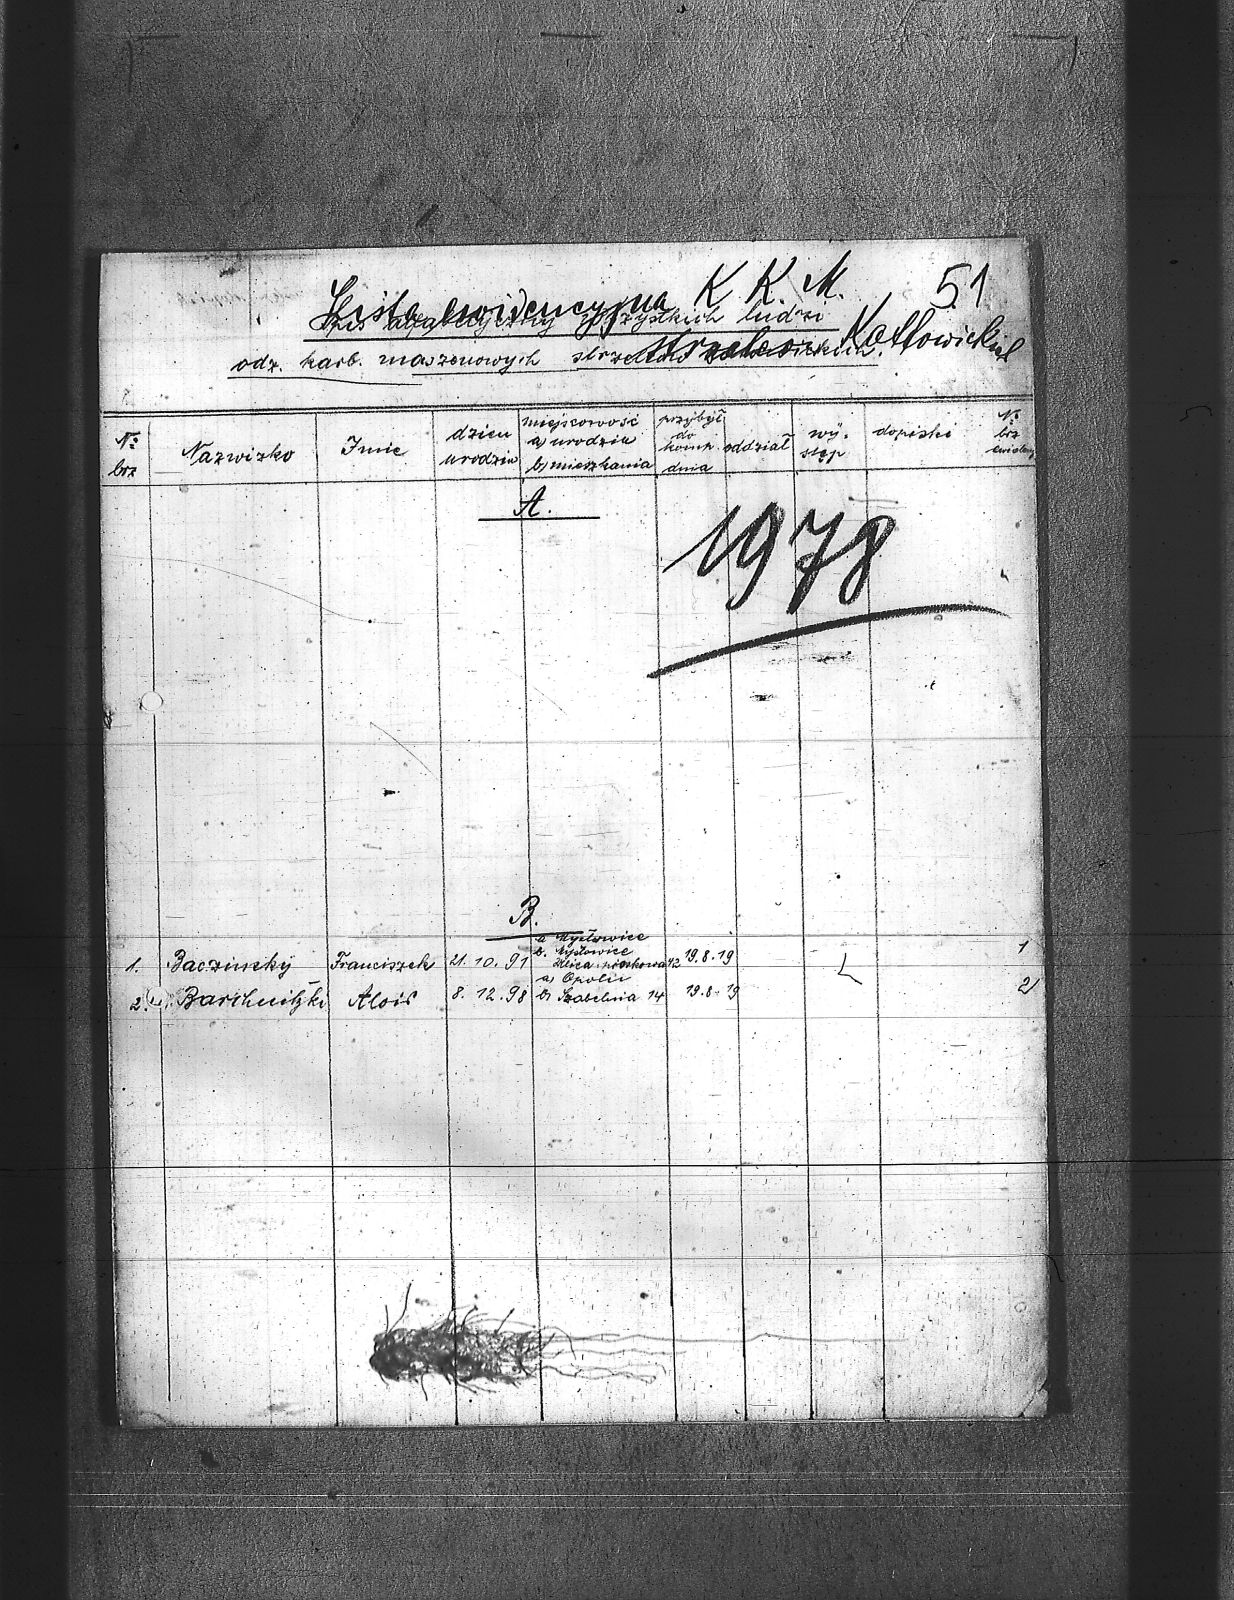 Lista ewidencyjna K. K. M. 51
Spis alfabetyczny wszystkich ludzi
odz. karb. maszenowych strzelców Kattowickich
№ brz
Nazwisko
Imie
dzien urodzin
miejscowość a, urodzin b, mieszkania
przybył do komp. dnia
oddział
wy-stęp
dopiski
№ brz ewidency
A.
1978
B.
1. Baczinsky Franciszek 21. 10. 91 a Mysłowice b. Mysłowice Ulica 42 19.8.19 1
2. Alois 8. 12. 98 a, Opolu b, Szabelnia 14 19.8.19 2